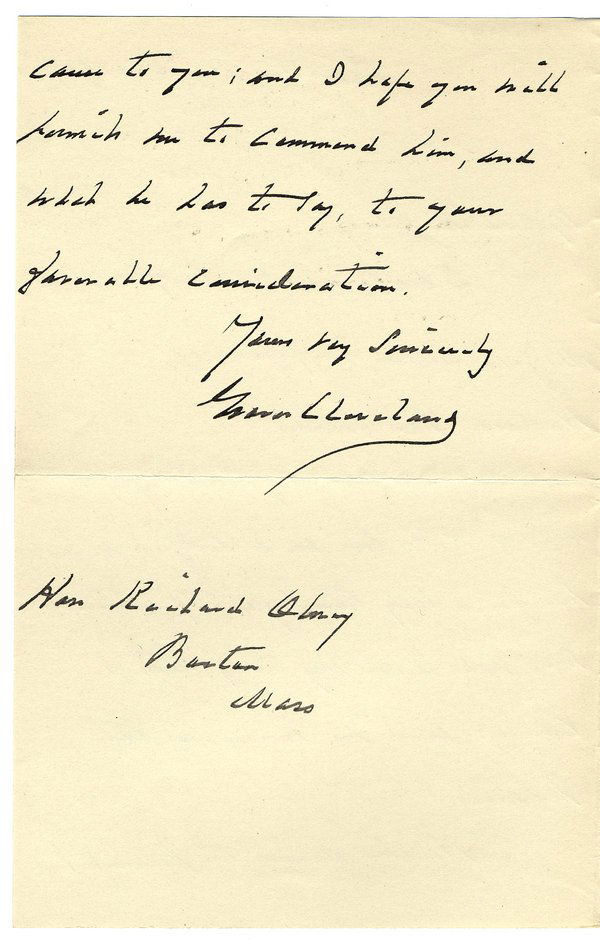 cause to you; and I hope you will
permit me to commend him, and
what he has to say, to your
favorable consideration.
Yours very Sincerely
Grover Cleveland
Hon Richard Olney
Boston
Mass